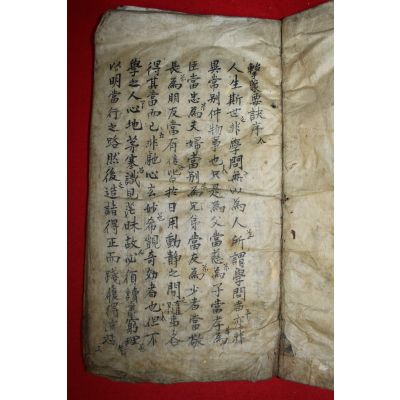 擊蒙要訣序
人生斯世非學問無以為人所謂學問者亦非
異常別件物事也只是為父當慈為子當孝為
臣當忠為夫婦當別為兄弟當友為少者當敬
長為朋友當有信皆於日用動靜之間隨事各
得其當而已非馳心玄妙希覬奇效者也但不
學之人心地茅塞識見茫昧故必須讀書窮理
以明當行之路然後造詣得正而踐履得